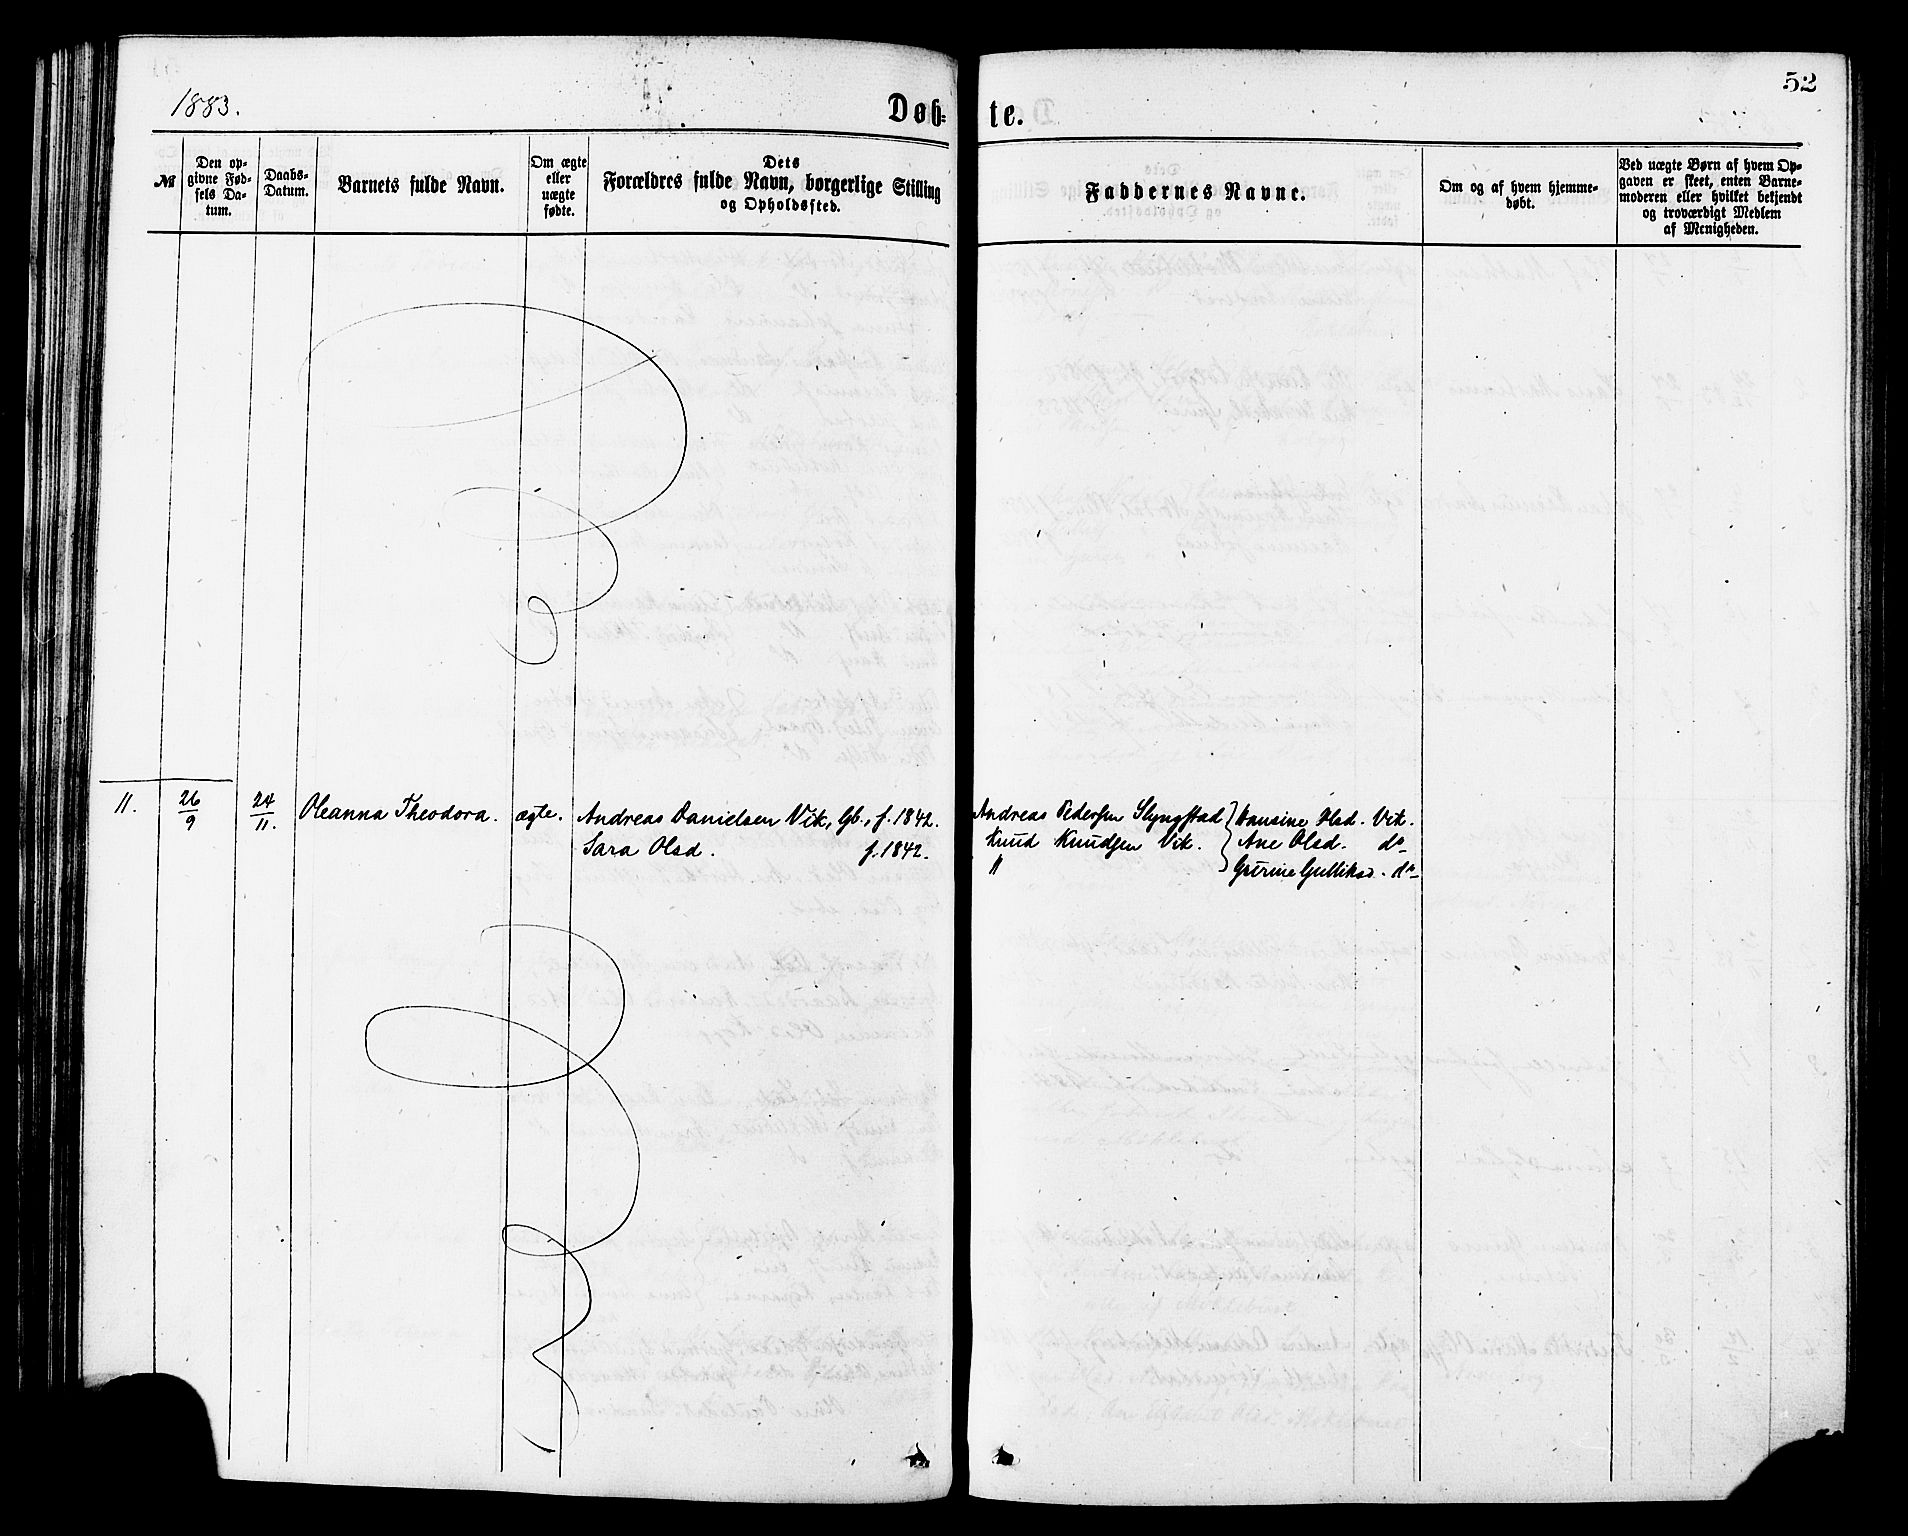 52
1883.
Døb- te.
№
Den op-
givne Fød-
sels Da-
tum.
Daabs-
Datum.
Barnets fulde Navn.
Om ægte
eller
uægte
fødte.
Dets
Forældres fulde Navn, borgerlige Stilling
og Opholdssted.
Faddernes Navne.
Om og af hvem hjemme-
døbt.
Ved uægte Børn af hvem Op-
gaven er skeet, enten Barne-
moderen eller hvilket bekjendt
og troværdigt Medlem
af Menigheden.
11. 26/9 24/11. Oleanna Theodora. ægte. Andreas Danielsen Vik, Gb., f. 1842. Andreas Pedersen Slyngstad Hansine Olsd. Vik.
Sara Olsd. f. 1842. Knud Knudsen Vik. Ane Olsd. do
" Gurine Gulliksd. do